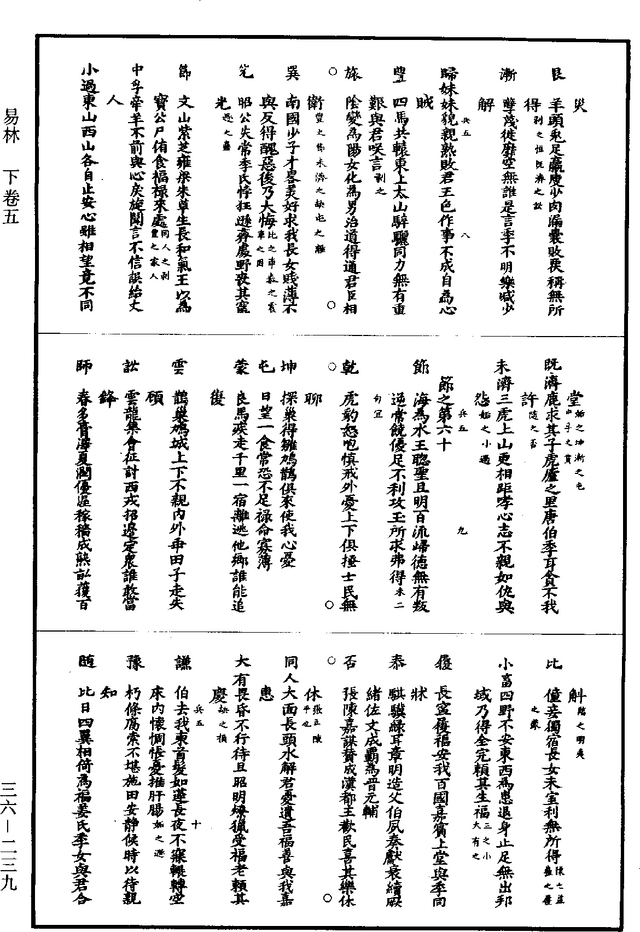 易林 下 卷五
災
艮 羊頭兔足羸瘦少肉漏囊敗粟利無所
得 剝之恒既濟之訟
漸 孽茂徙靡空無誰是言季不明樂減少
解
歸妹妹貌親熟敗君王色作事不成自為心
賊
豐 四馬共轅東上太山騂驪同力無有重
艱與君咲言 剝之
旅 陰變為陽女化為男治道得通君臣相
巽 南國少子才畧美好求我長女賤薄不
與反得醜惡後乃大悔
兌 昭公失常季氏悖狂遜齊處野喪其寵
光 遯之蠱
節 文山紫芝雍梁朱草生長和氣王以為
寶公尸侑食福祿來處
中孚帝羊不前與心戾旋聞言不信誤紿丈
人
小過東山西山各自止安心雖相望竟不同
堂
既濟鹿求其子虎廬之里唐伯李耳貪不我
許 隨之否
未濟三虎上山更相距哮心志不親如仇與
怨 姤之小過
節之第六十
節 海為水王聰聖且明百流歸德無有叛
逆常饒優足不利攻玉所求弗得
乾 虎豹怒咆慎戒外憂上下俱搔士民無
聊
坤 探巢得雛鳩鵲俱來使我心憂
屯 日望一食常恐不足祿命寡薄
蒙 良馬疾走千里一宿離逃他鄉誰能追
復
雲 鵲巢鳩城上下不親內外乖田子走失
願
訟 雲龍集會征討西戎招邊定眾誰敢當
鋒
師 春多膏澤夏潤優渥稼穡成熟畝獲百
斛
比 僮妾獨宿長女未室利無所得
小畜四野不安東西為患退身止足無出邦
域乃得全完賴其生福 大有之
履 長寧履福安我百國嘉賓上堂與季同
牀
泰 騏驥綠耳章明造父伯夙奏獻衰續厥
緒佐文成霸為晉元輔
否 張陳嘉謀贊成漢都主歡民喜其樂休
休
同人大面長頭來解君憂遺吾福善與我嘉
惠
大有畏昏不行待旦昭明燎獵受福老賴其
慶 訟之損
謙 伯去我東首髮如蓬長夜不寐輾轉空
床內懷惆悵憂摧肝腸 姤之遯
豫 朽條腐索不堪施用安靜候時以待親
知
隨 比目四翼相倚為福姜氏季女與君合
三六—二三九